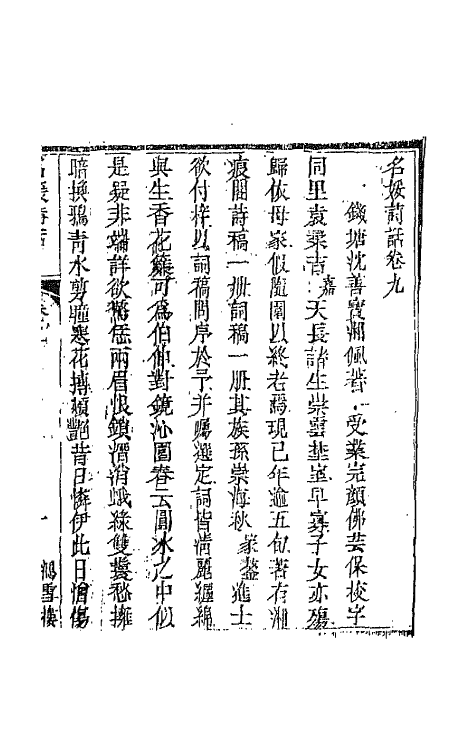 名媛詩話卷九
錢塘沈善寶湘佩著 受業完顏佛芸保校字
同里袁棻吉嘉天長諸生崇雲基室早寡子女亦殤
歸依母家假隨園以終老焉現已年逾五旬著有湘
痕閣詩稿一册詞稿一册其族孫崇海秋家鏊進士
欲付梓以詞稿問序於予并屬選定詞皆清麗纏綿
與生香花簾可爲伯仲對鏡沁園春云圓冰之中似
是疑非端詳欲驚恁兩眉恨鎖潛消蛾綠雙鬟愁擁
暗換鴉青水剪瞳寒花摶頰艷昔日憐伊此日傷
名媛詩話
卷九
一
鴻雪樓